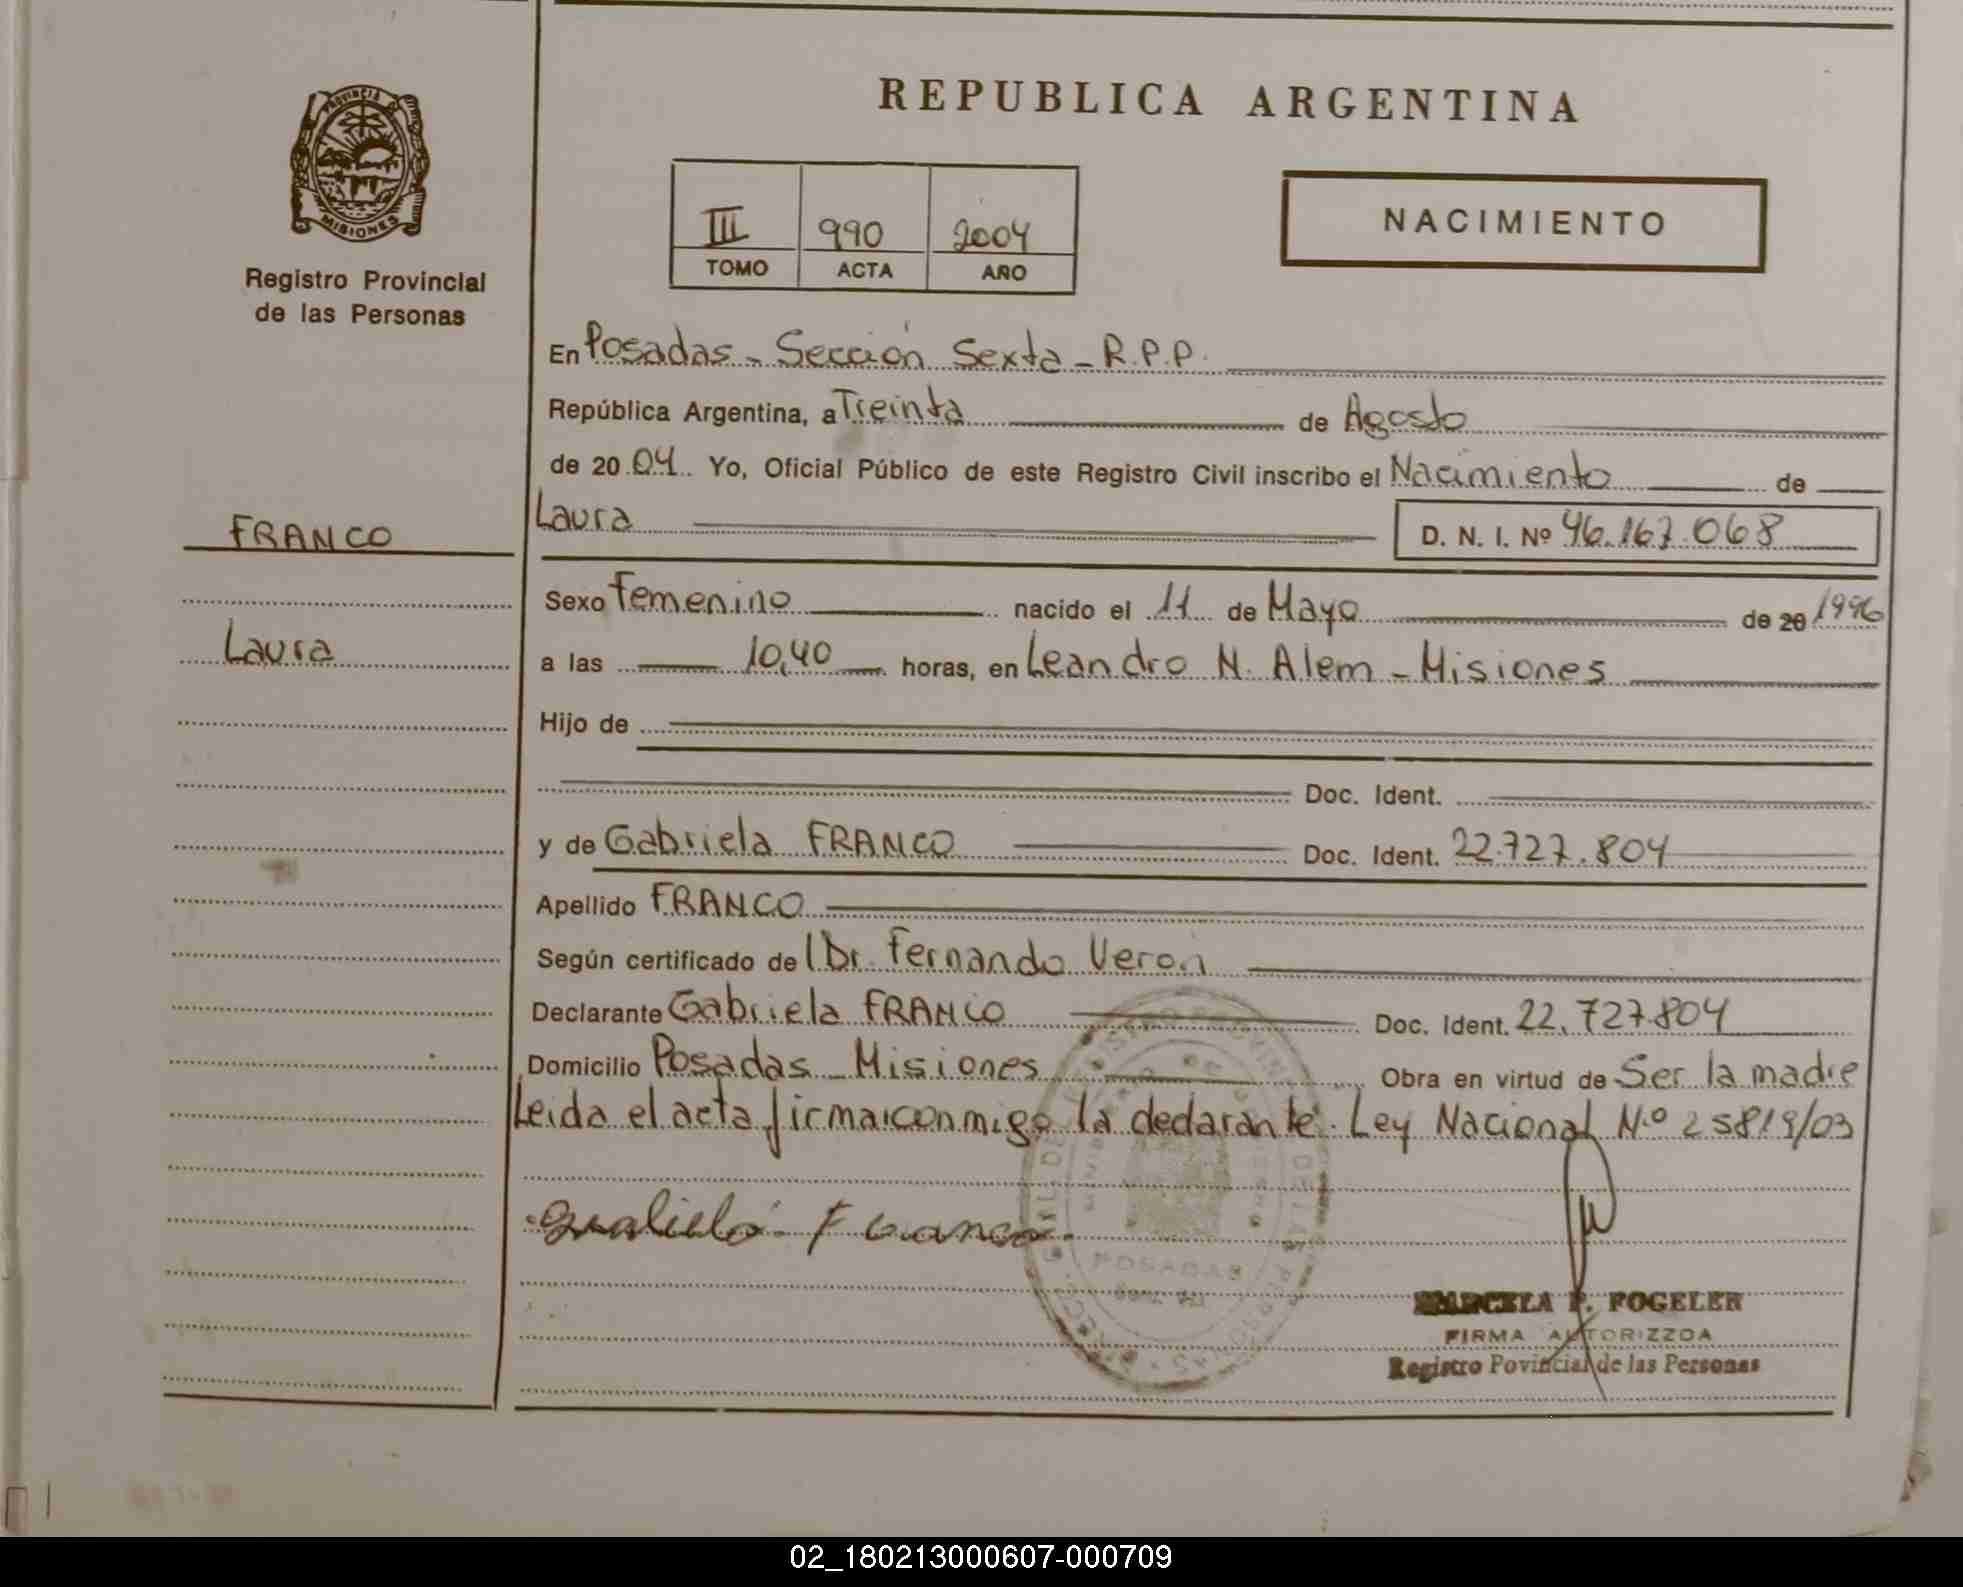 REPUBLICA ARGENTINA
PROVINCIA DE
MISIONES
Registro Provincial
de las Personas
III 990 2004
TOMO ACTA AÑO
NACIMIENTO
En Posadas - Sección Sexta - R.P.P.
República Argentina, a Treinta de Agosto
de 20 04 Yo, Oficial Público de este Registro Civil inscribo el Nacimiento de
Laura D. N. I. Nº 46.167.068
FRANCO
Laura
Sexo Femenino nacido el 11 de Mayo de 20 1996
a las 10,40 horas, en Leandro N. Alem - Misiones
Hijo de
Doc. Ident.
y de Gabriela FRANCO Doc. Ident. 22.727.804
Apellido FRANCO
Según certificado de Dr. Fernando Veron
Declarante Gabriela FRANCO Doc. Ident. 22.727.804
Domicilio Posadas - Misiones Obra en virtud de Ser la madre
Leida el acta firma conmigo la declarante. Ley Nacional N.º 25819/03
Franco
POSADAS
MARCELA P. FOGELER
FIRMA AUTORIZZDA
Registro Povincial de las Personas
02_180213000607-000709